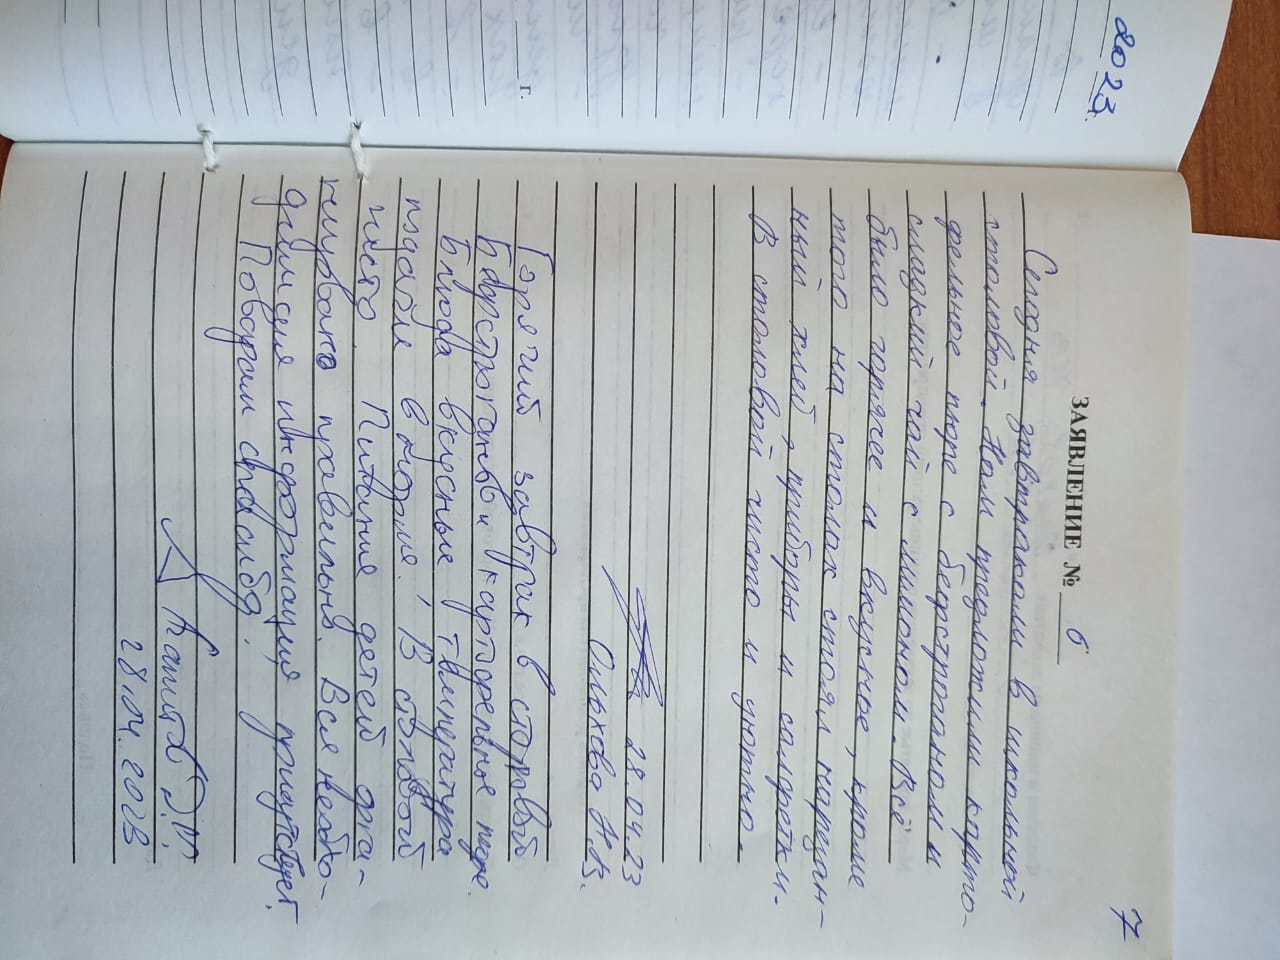 2023
г.
7
ЗАЯВЛЕНИЕ № 6
Сегодня завтракали в школьной
столовой. Нам предложили карто-
фельное пюре с бефстрогановом и
сладкий чай с лимоном. Всё
было горячее и вкусное, кроме
того на столах стоял нарезан-
ный хлеб, приборы и салфетки.
В столовой чисто и уютно.
28.04.23
Ольхова Н.В.
Горячий завтрак в столовой
Бефстроганов и картофельное пюре.
Блюда вкусные, температура
подачи в норме. В столовой
чисто. Питание детей орга-
низовано правильно. Вся необхо-
димая информация присутствует.
Поварам спасибо.
28.04.2023